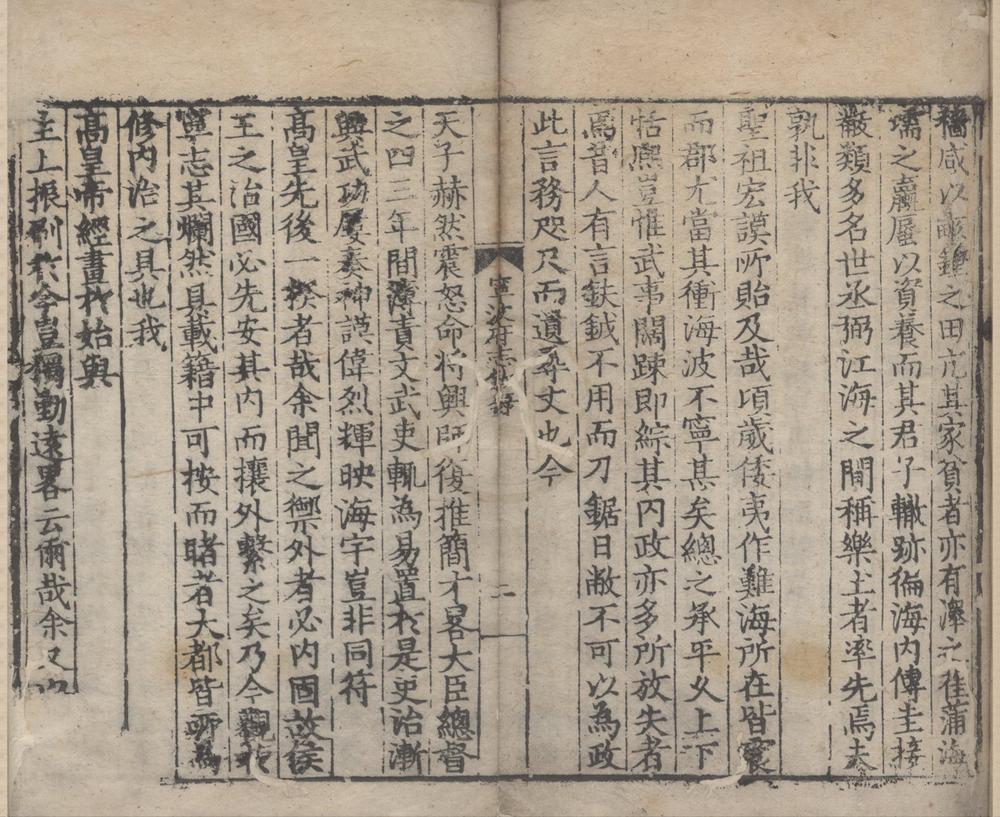 穡咸以畝鍾之田亢其家貧者亦有澤之萑蒲海
壖之蠃蜃以資養而其君子轍跡徧海內傳圭接
黻類多名世丞弼江海之間稱樂土者率先焉夫
孰非我
聖祖宏謨所貽及哉頃歲倭夷作難海所在皆震
而郡尤當其衝海波不寧甚矣總之承平乆上下
恬熈豈惟武事闊踈即綜其內政亦多所放失者
焉昔人有言鈇鉞不用而刀鋸日敝不可以為政
此言務咫尺而遺尋丈也今
寧波府志
二
天子赫然震怒命將興師復推簡才畧大臣總督
之四三年間濅責文武吏輒為易置扵是吏治漸
興武功屢奏神謨偉烈輝映海宇豈非同符
髙皇先後一揆者哉余聞之禦外者必內固故侯
王之治國必先安其內而攘外繫之矣乃今觀於
寧志其爛然具載籍中可按而睹者大都皆所為
修內治之具也我
髙皇帝經畫扵始與
主上振刷於今豈獨勤遠畧云爾哉余又